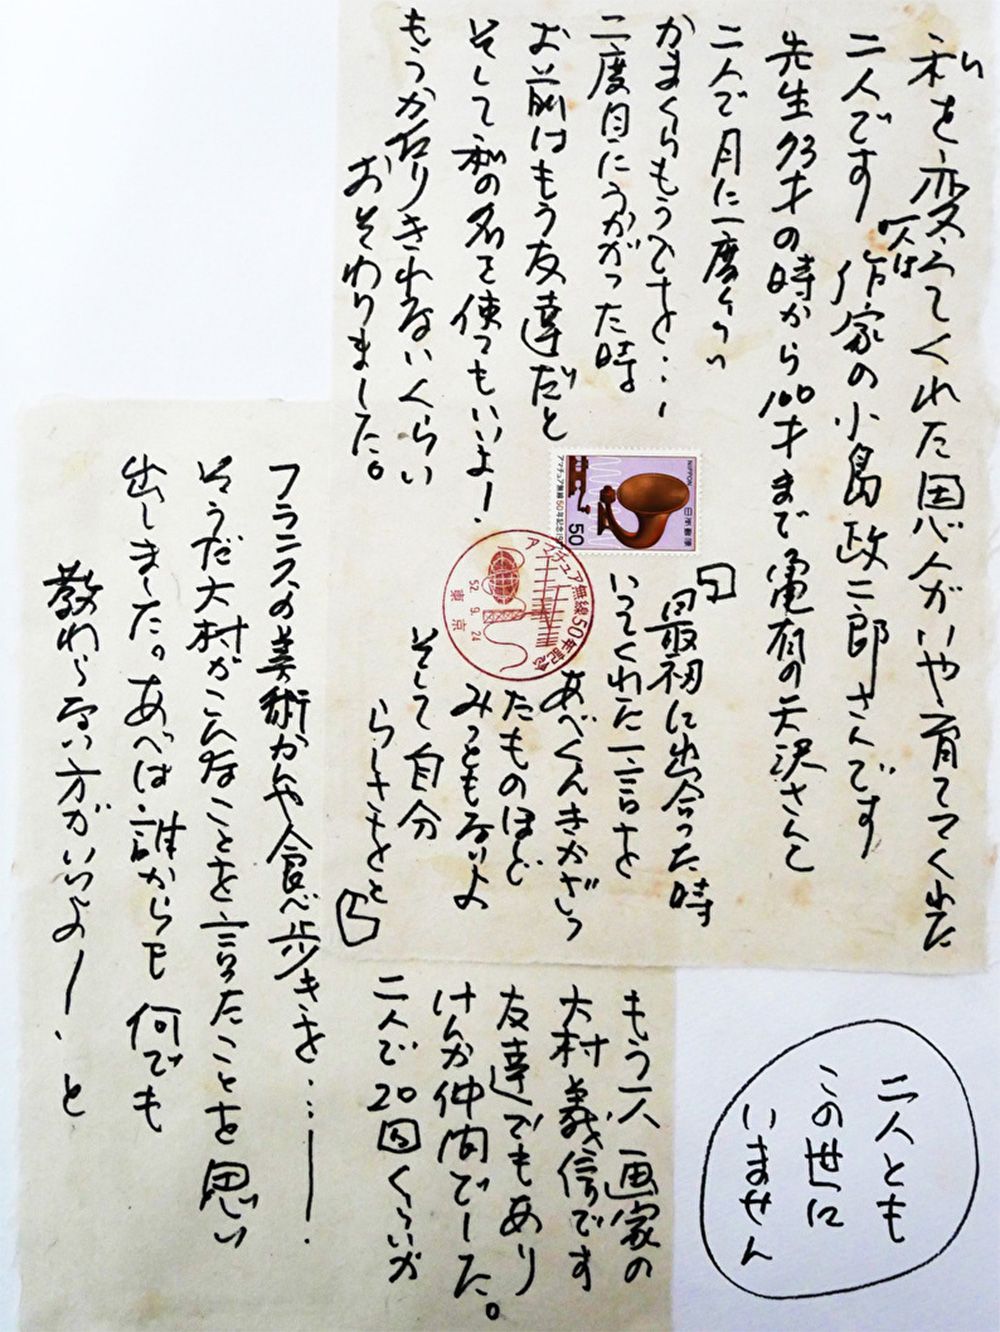 私を変えてくれた恩人がいや育ててくれた
二人です
一人は
作家の小島政二郎さんです
先生93才の時から100才まで亀有の天沢さんと
二人で月に一度くらい
かまくらもうでを…ー
二度目にうかがった時
お前はもう友達だと
そして私の名を使てもいいよー
もうかたりきれないくらい
おそわりました。
最初に出合った時
いってくれた一言を
あべくんきかざっ
たものほど
みっともないよ
そして自分
らしさをと
もう一人画家の
大村義信です
友達でもあり
けんか仲間でした。
二人で20回くらいか
フランスの美術かんや食べ歩きを…ー.
そうだ大村がこんなことを言ったことを思い
出しました。あべは誰からも何でも
教わらない方がいいよー.と
二人とも
この世に
いません
NIPPON
日本郵便
50
アマチュア無線50年記念
アマチュア無線50年記念
52.9.24
東京